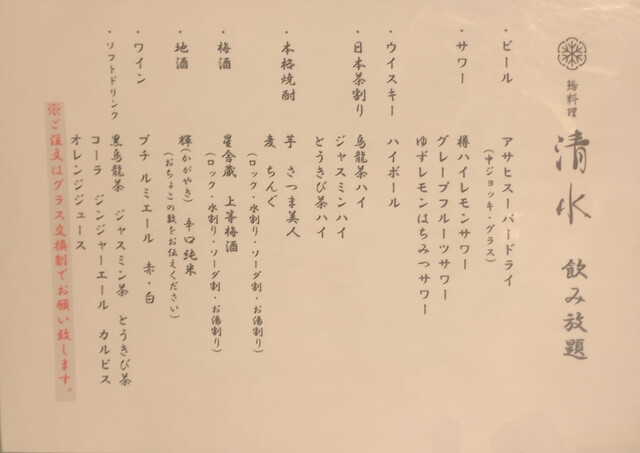 鶏料理 清水 飲み放題
・ビール
アサヒスーパードライ
(中ジョッキ・グラス)
・サワー
樽ハイレモンサワー
グレープフルーツサワー
ゆずレモンはちみつサワー
・ウイスキー
ハイボール
・日本茶割り
烏龍茶ハイ
ジャスミンハイ
とうきび茶ハイ
・本格焼酎
芋 さつま美人
麦 ちんぐ
(ロック・水割り・ソーダ割・お湯割り)
・梅酒
星舎蔵 上等梅酒
(ロック・水割り・ソーダ割・お湯割り)
・地酒
輝(かがやき) 辛口純米
(おちょこの数をお伝えください)
・ワイン
プチ ルミエール 赤・白
・ソフトドリンク
黒烏龍茶 ジャスミン茶 とうきび茶
コーラ ジンジャーエール カルピス
オレンジジュース
※ご注文はグラス交換制でお願い致します。